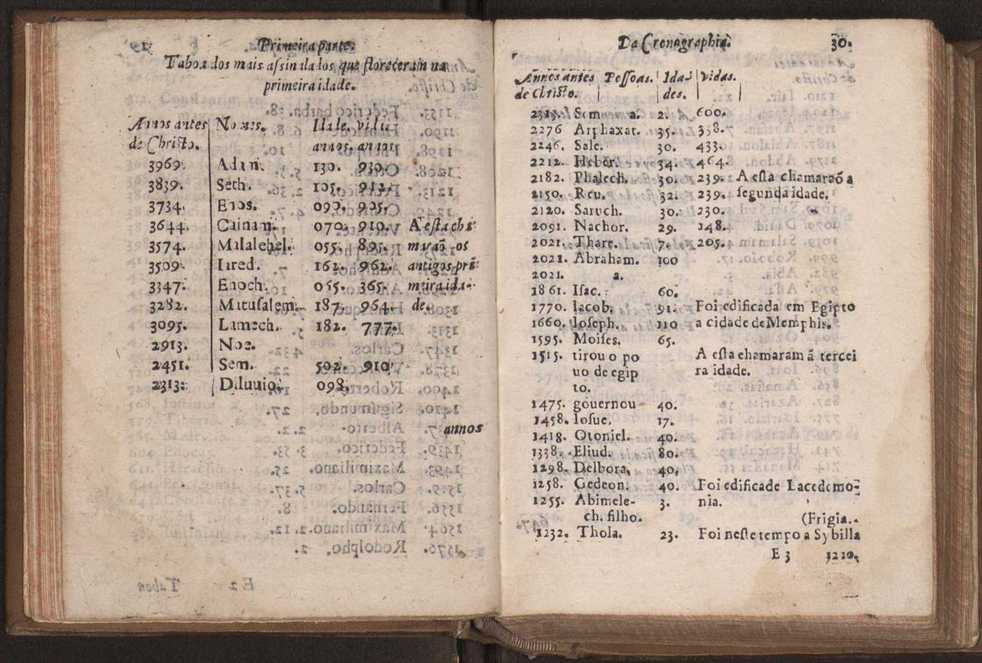 Primeira parte.
Taboa dos mais assinalados que floreceram na
primeira idade.
Annos antes Nomes. Idade. vidu
de Christo. annos. annos
3969. Adam. 130. 930.
3839. Seth. 105. 912.
3734. Enos. 090. 905.
3644. Cainam. 070. 910. A esta cha
3574. Malalehel. 055. 895. mauaõ os
3509. Iared. 162. 962. antigos pri
3347. Enoch. 055. 365. meira ida-
3282. Matusalem. 187. 964. de.
3095. Lamech. 182. 777.
2913. Noe.
2451. Sem. 502. 910
2313: Diluuio. 098.
annos
Da Cronographia. 30.
Annos antes Pessoas. Ida- vidas.
de Christo. des.
2313. Sem a. 2. 600.
2276 Arphaxat. 35. 338.
2246. Sale. 30. 433.
2212. Heber. 34. 464.
2182. Phalech. 30. 239. A esta chamaraõ a
2150. Reu. 32. 239. segunda idade.
2120. Saruch. 30. 230.
2091. Nachor. 29. 148.
2021. Thare. 7. 205.
2021. Abraham. 100
2021. a.
1861. Isac. 60.
1770. Iacob. 91. Foi edificada em Egipto
1660. Ioseph. 110 a cidade de Memphis.
1595. Moises. 65.
1515. tirou o po A esta chamaram ã tercei
uo de egip ra idade.
to.
1475. gouernou 40.
1458. Iosue. 17.
1418. Otoniel. 40.
1338. Eliud. 80.
1298. Delbora. 40.
1258. Gedeon. 40. Foi edificade Lacedemo
1255. Abimele- 3. nia.
ch. filho. (Frigia.
1232. Thola. 23. Foi neste tempo a Sybilla
E 3 1210.